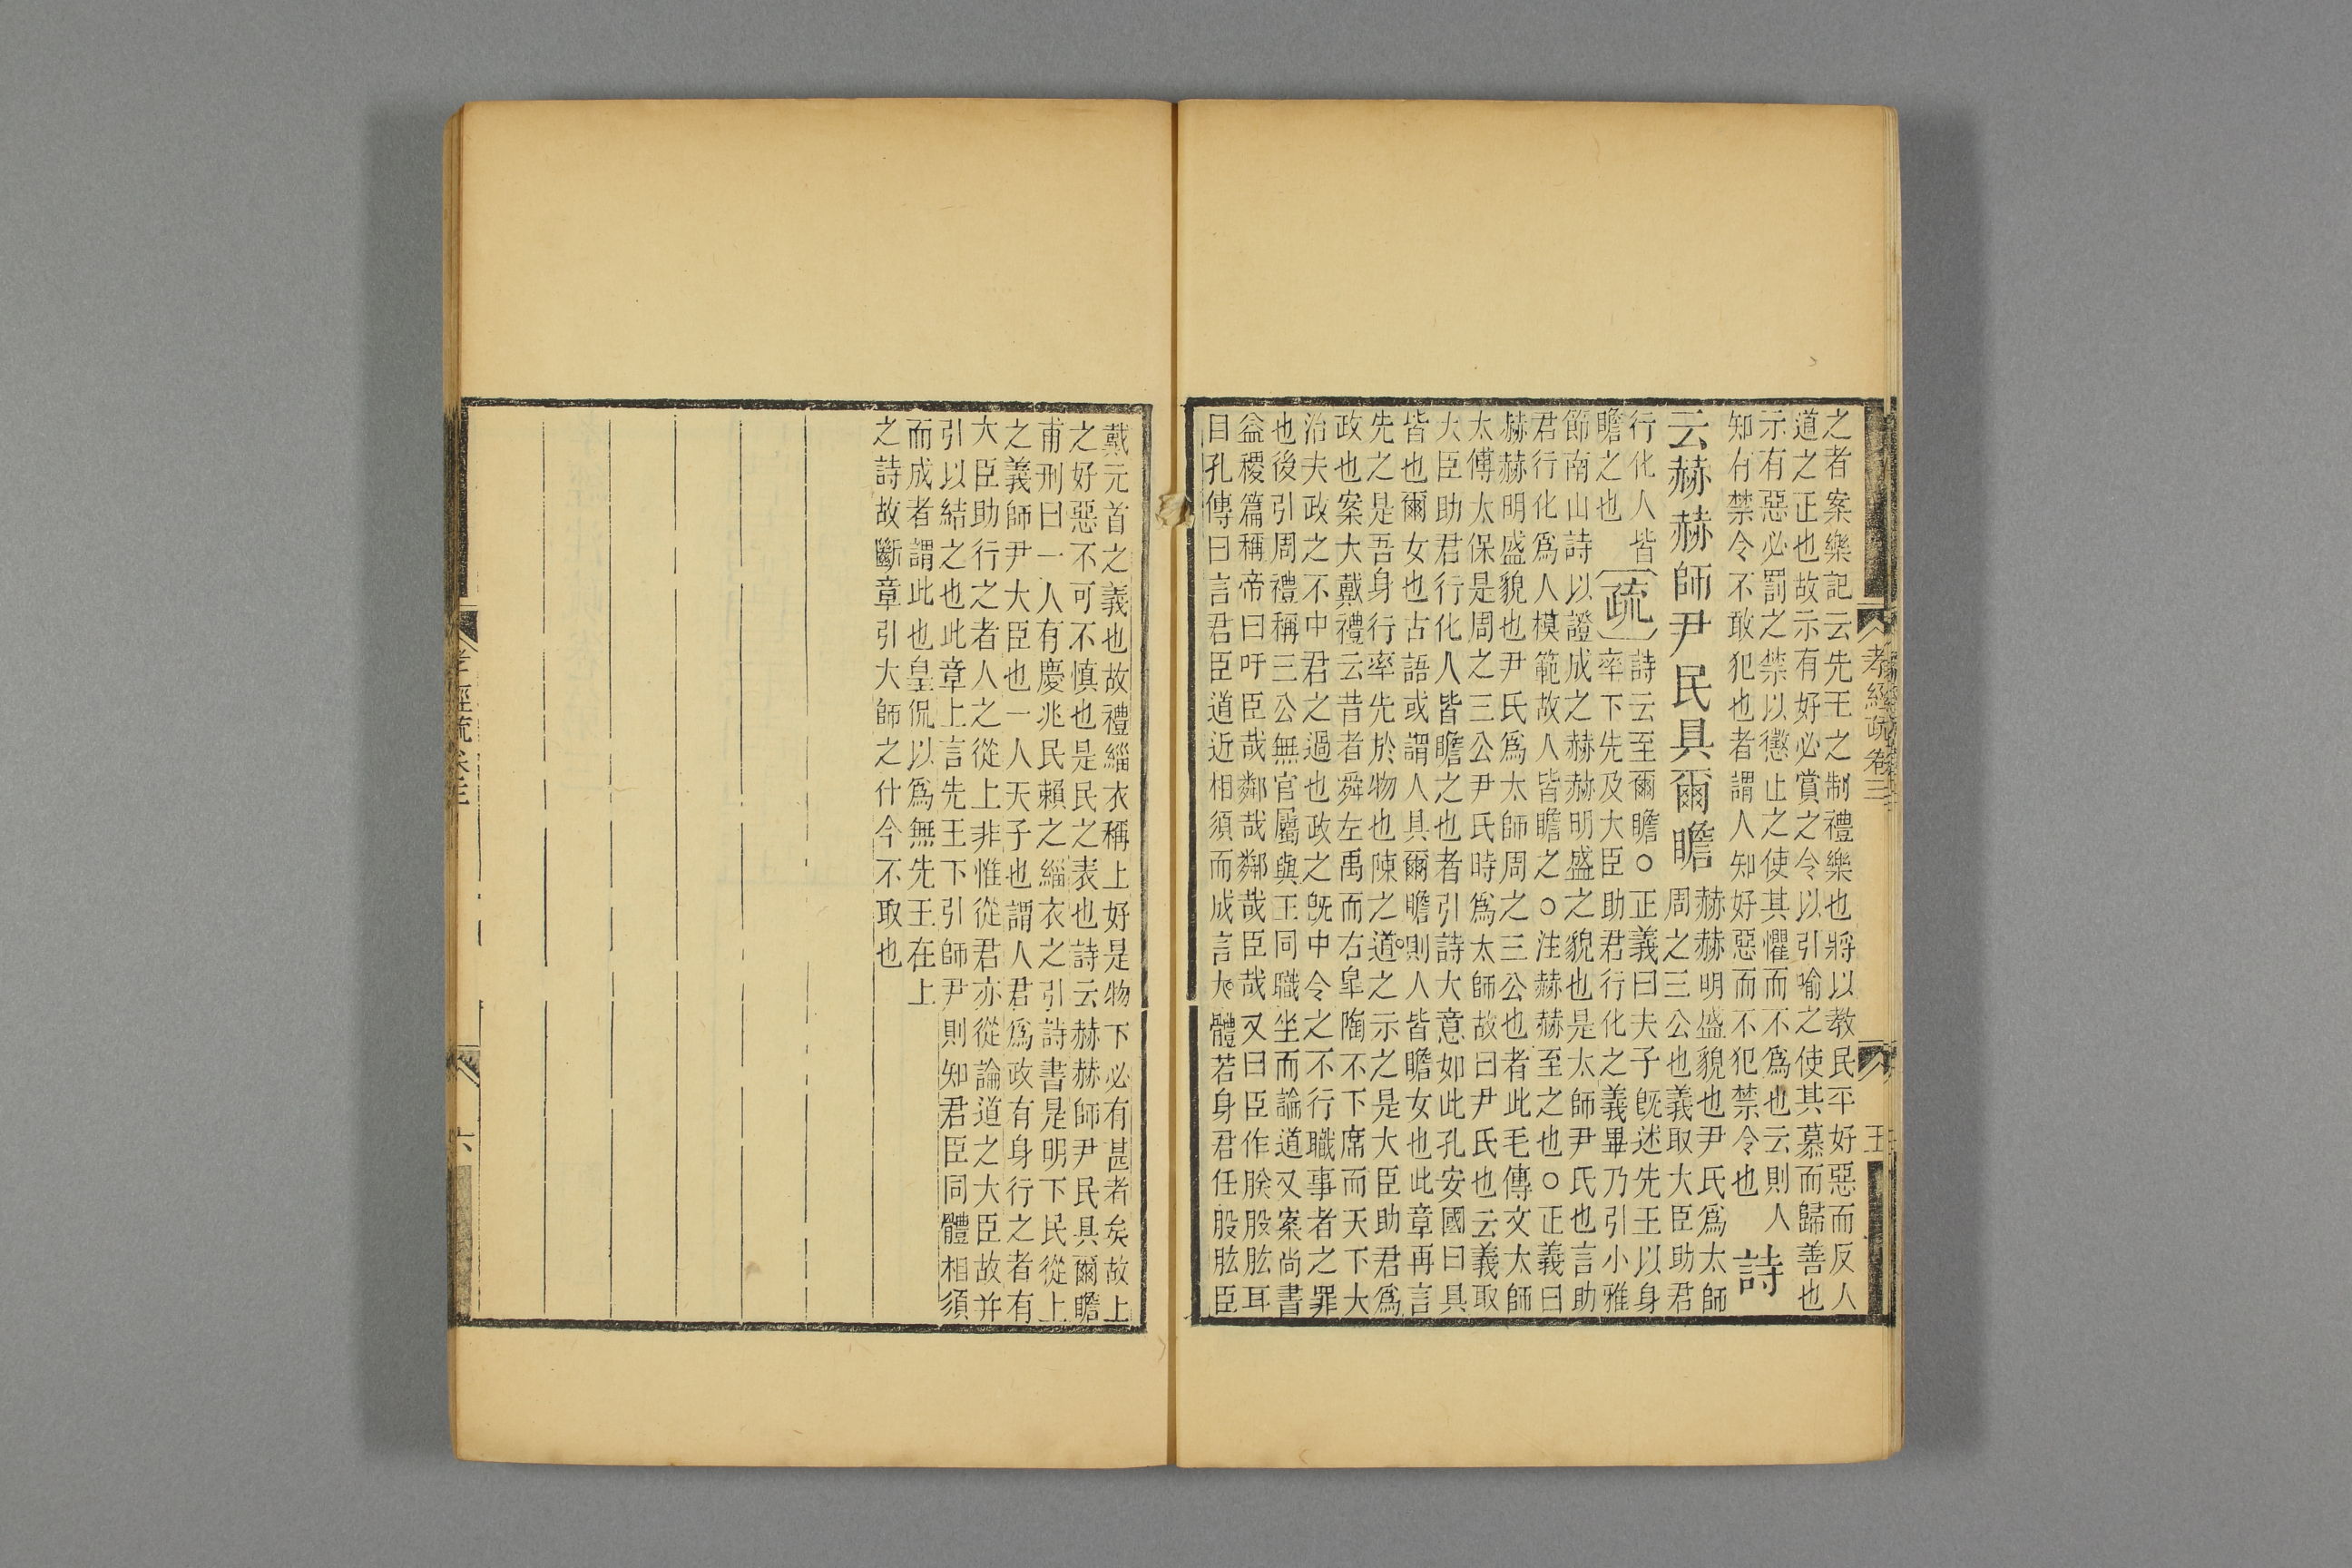 之者案樂記云先王之制禮樂也將以教民平好惡而反人
道之正也故示有好必賞之令以引喻之使其慕而歸善也
示有惡必罰之禁以懲止之使其懼而不爲也云則人
知有禁令不敢犯也者謂人知好惡而不犯禁令也
詩
云赫赫師尹民具爾瞻
赫赫明盛貌也尹氏爲太師
周之三公也義取大臣助君
行化人皆
瞻之也
疏
詩云至爾瞻○正義曰夫子旣述先王以身
率下先及大臣助君行化之義畢乃引小雅
節南山詩以證成之赫赫明盛之貌也是太師尹氏也言助
君行化爲人模範故人皆瞻之○注赫赫至之也○正義曰
赫赫明盛貌也尹氏爲太師周之三公也者此毛傳文太師
太傅太保是周之三公尹氏時爲太師故曰尹氏也云義取
大臣助君行化人皆瞻之也者引詩大意如此孔安國曰具
皆也爾女也古語或謂人具爾瞻則人皆瞻女也此章再言
先之是吾身行率先於物也陳之道之示之是大臣助君爲
政也案大戴禮云昔者舜左禹而右皐陶不下席而天下大
治夫政之不中君之過也政之旣中令之不行職事者之罪
也後引周禮稱三公無官屬與王同職坐而論道又案尚書
益稷篇稱帝曰吁臣哉鄰哉鄰哉臣哉又曰臣作朕股肱耳
目孔傳曰言君臣道近相須而成言大體若身君任股肱臣
孝經疏卷三
五
戴元首之義也故禮緇衣稱上好是物下必有甚者矣故上
之好惡不可不慎也是民之表也詩云赫赫師尹民具爾瞻
甫刑曰一人有慶兆民賴之緇衣之引詩書是明下民從上
之義師尹大臣也一人天子也謂人君爲政有身行之者有
大臣助行之者人之從上非惟從君亦從論道之大臣故并
引以結之也此章上言先王下引師尹則知君臣同體相須
而成者謂此也皇侃以爲無先王在上
之詩故斷章引大師之什今不取也
孝經疏卷三
六